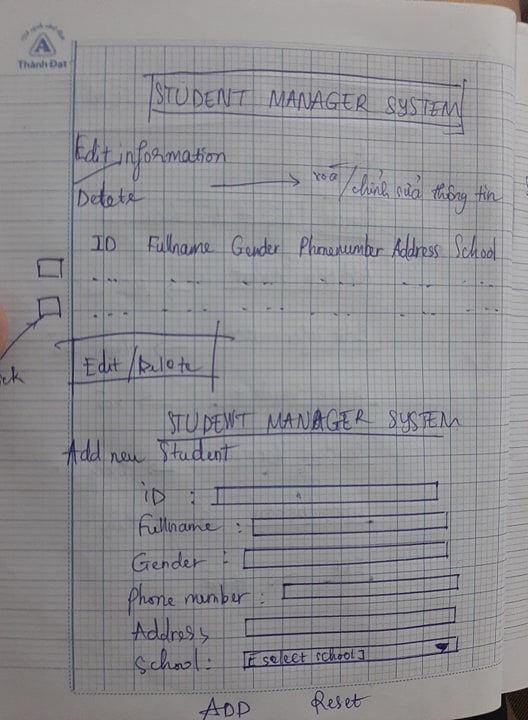 Thành Đạt
STUDENT MANAGER SYSTEM
Edit information
Delete
xoá/chỉnh sửa thông tin
ID Fullname Gender Phonenumber Address School
... ... ... ... ... ...
... ... ... ... ... ...
Edit/Delete
STUDENT MANAGER SYSTEM
Add new Student
iD :
Fullname :
Gender :
Phone number :
Address
School : [select school]
ADD Reset